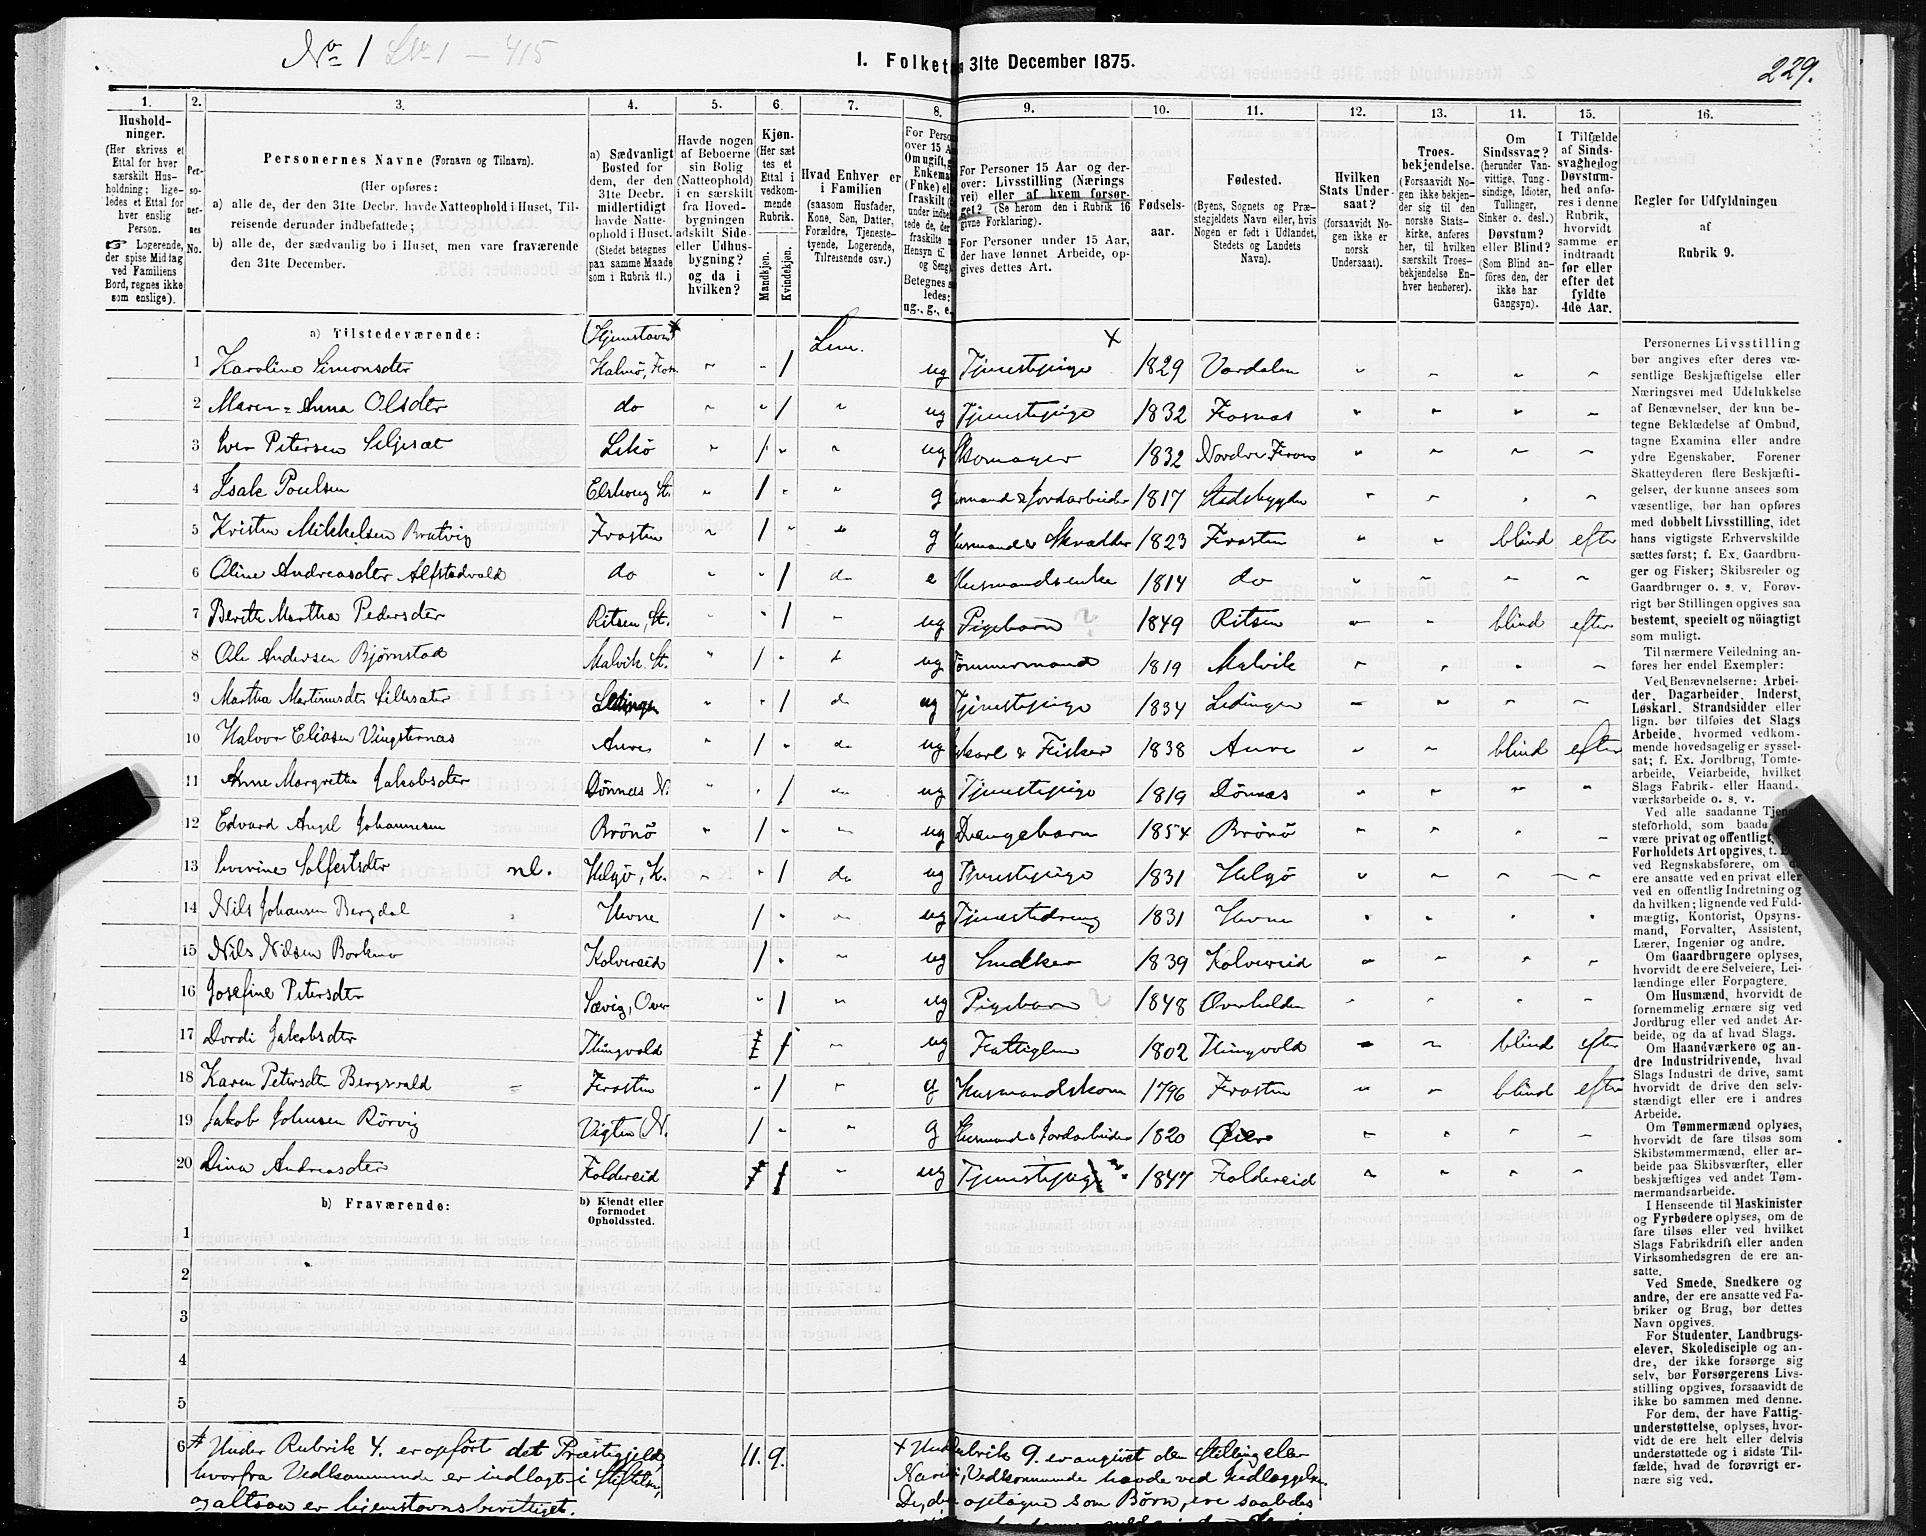 No 1 Ls 1 — 415
1. Folket 31te December 1875.
229.
1. 2. 3. 4. 5. 6. 7. 8. 9. 10. 11. 12. 13. 14. 15. 16.
Hushold-
ninger.
(Her skrives et
Ettal for hver
særskilt Hus-
holdning; lige-
ledes et Ettal for
hver enslig
Person.
☞ Logerende,
der spise Middag
ved Familiens
Bord, regnes ikke
som enslige).
Per-
so-
ner-
nes
No.
Personernes Navne (Fornavn og Tilnavn).
(Her opføres:
a) alle de, der den 31te Decbr. havde Natteophold i Huset, Til-
reisende derunder indbefattede;
b) alle de, der sædvanlig bo i Huset, men vare fraværende
den 31te December.
a) Sædvanligt
Bosted for
dem, der den
31te Decbr.
midlertidigt
havde Natte-
ophold i Huset.
(Stedet betegnes
paa samme Maade
som i Rubrik 11.)
Havde nogen
af Beboerne
sin Bolig
(Natteophold)
i en særskilt
fra Hoved-
bygningen
adskilt Side-
eller Udhus-
bygning?
og da i
hvilken?
Kjøn.
(Her sæt
tes et
Ettal i
vedkom-
mende
Rubrik.)
Mandkjøn.
Kvindekjøn.
Hvad Enhver er
i Familien
(saasom Husfader,
Kone, Søn, Datter,
Forældre, Tjeneste-
tyende, Logerende,
Tilreisende osv.)
For Perso
over 15 A
Om ugift,
Enkema
(Fnke) el
fraskilt
under indbe
tede de, der
fraskilte
Hensyn ti
og Seng
Betegnes s
ledes:
ug., g., e.
For Personer 15 Aar og der-
over: Livsstilling (Nærings
vei) eller af hvem forsør-
get? (Se herom den i Rubrik 16
givne Forklaring).
For Personer under 15 Aar,
der have lønnet Arbeide, op-
gives dettes Art.
Fødsels-
aar.
Fødested.
(Byens, Sognets og Præ-
stegjeldets Navn eller, hvis
Nogen er født i Udlandet,
Stedets og Landets
Navn).
Hvilken
Stats Under-
saat?
(forsaavidt No-
gen ikke er
norsk
Undersaat).
Troes-
bekjendelse.
(Forsaavidt No-
gen ikke bekjen-
der sig til den
norske Stats-
kirke, anføres
her, til hvilken
særskilt Troes-
bekjendelse En-
hver henhører).
Om
Sindssvag?
(herunder Van-
vittige, Tung-
sindige, Idioter,
Tullinger,
Sinker o. desl.)
Døvstum?
eller Blind?
(Som Blind an-
føres den, der
ikke har
Gangsyn).
I Tilfælde
af Sinds-
svaghed og
Døvstum-
hed anfø-
res i denne
Rubrik,
hvorvidt
samme er
indtraadt
før eller
efter det
fyldte
4de Aar.
Regler for Udfyldningen
af
Rubrik 9.
a) Tilstedeværende: (Hjemstavn) Lem. x
1 Karoline Simonsdtr Halmø, Fosn ug Tjenestepige 1829 Værdalen
2 Maren-Anna Olsdtr do ug Tjenestepige 1832 Fosnæs
3 Iver Petersen Seljesæt Lekø 1 ug Skomager 1832 Nordre Fron
4 Isak Poulsen St. 1 g Husmand & Jordarbeider 1817 Stadsbygden
5 Kristen Mikkelsen Bratvig Frosten 1 do g Husmand & Skrædder 1823 Frosten blind efter
6 Oline Andreasdtr Alfstadvald do 1 do e Husmandsenke 1814 do
7 Berith Martha Pedersdtr Ritsen, St. 1 ug Pigebarn ? 1849 Ritsen blind efter
8 Ole Andersen Bjørnstad Malvik St. 1 ug Tømmermand 1819 Malvik
9 Martha Martinusdtr 1 do ug Tjenestepige 1834 Lødingen
10 Halvor Eliasen Vingsternæs Aure 1 do ug karl & Fisker 1838 Aure blind efter
11 Anne Margrethe Jakobsdtr Dønnæs N. 1 do ug Tjenestepige 1819 Dønæs
12 Edvard Angel Johannesen Brønø 1 ug Drengebarn 1854 Brønø
13 nl. Helgø, K. 1 do ug Tjenestepige 1831 Helgø
14 Nils Johansen Bergdal Hevne 1 ug Tjenestedreng 1831 Hevne
15 Nils Nilsen Kolvereid 1 ug Snedker 1839 Kolvereid
16 Josefine Petersdtr Sævig, Over 1 ug Pigebarn ? 1848 Overhalden
17 Dordi Jakobsdtr Thingvold 1 ug Fattiglem 1802 Thingvold blind efter
18 Karen Petersdtr Bergsvald Frosten 1 g Husmandskone 1796 Frosten blind efter
19 Jakob Johnsen Rørvig Vigten N. 1 g Husmand & Jordarbeider 1820
20 Dina Andreasdter Foldereid 1 ug Tjenestepige 1847 Foldereid
b) Fraværende:
b) Kjendt eller
formodet
Opholdssted.
1
2
3
4
5
6
11. 9.
# Under Rubrik 4. er opført det Præstegjeld,
hvorfra Vedkommende er indlagt i Stiftelsen,
og altsaa er hjemstavnsberettiget.
x Und Rubrik 9. er angivet den Stilling eller
Næri, Vedkommende havde ved Indlæggelsen.
De, de optagne som Børn, ere saaledes
Personernes Livsstilling
bør angives efter deres væ-
sentlige Beskjæftigelse eller
Næringsvei med Udelukkelse
af Benævnelser, der kun be-
tegne Beklædelse af Ombud,
tagne Examina eller andre
ydre Egenskaber. Forener
Skatteyderen flere Beskjæfti-
gelser, der kunne ansees som
væsentlige, bør han opføres
med dobbelt Livsstilling, idet
hans vigtigste Erhvervskilde
sættes først; f. Ex. Gaardbru-
ger og Fisker; Skibsreder og
Gaardbruger o. s. v. Forøv-
rigt bør Stillingen opgives saa
bestemt, specielt og nöiagtigt
som muligt.
Til nærmere Veiledning an-
føres her endel Exempler:
Ved Benævnelserne: Arbei-
der, Dagarbeider, Inderst,
Løskarl, Strandsidder eller
lign. bør tilføies det Slags
Arbeide, hvormed vedkom-
mende hovedsagelig er syssel-
sat; f. Ex. Jordbrug, Tomte-
arbeide, Veiarbeide, hvilket
Slags Fabrik- eller Haand-
værksarbeide o. s. v.
Ved alle saadanne Tjene
steforhold, som baade
være privat og offentligt,
Forholdets Art opgives, t.
ved Regnskabsførere, om
ere ansatte ved en privat eller
ved en offentlig Indretning og
da hvilken; lignende ved Fuld-
mægtig, Kontorist, Opsyns-
mand, Forvalter, Assistent,
Lærer, Ingeniør og andre.
Om Gaardbrugere oplyses,
hvorvidt de ere Selveiere, Lei-
lændinge eller Forpagtere.
Om Husmænd, hvorvidt de
fornemmelig ernære sig ved
Jordbrug eller ved andet Ar-
beide, og da af hvad Slags.
Om Haandværkere og an-
dre Industridrivende, hvad
Slags Industri de drive, samt
hvorvidt de drive den selv-
stændigt eller ere i andres
Arbeide.
Om Tømmermænd oplyses,
hvorvidt de fare tilsøs som
Skibstømmermænd, eller ar-
beide paa Skibsværfter, eller
beskjæftiges ved andet Tøm-
mermandsarbeide.
I Henseende til Maskinister
og Fyrbødere oplyses, om de
fare tilsøs eller ved hvilket
Slags Fabrikdrift eller anden
Virksomhedsgren de ere an-
satte.
Ved Smede, Snedkere og
andre, der ere ansatte ved Fa-
briker og Brug, bør dettes
Navn opgives.
For Studenter, Landbrugs-
elever, Skoledisciple og an-
dre, der ikke forsørge sig
selv, bør Forsørgerens Livs-
stilling opgives, forsaavidt de
ikke bo sammen med denne.
For dem, der have Fattig-
understøttelse, oplyses, hvor-
vidt de ere helt eller delvis
understøttede og i sidste Til-
fælde, hvad de forøvrigt er-
nære sig ved.